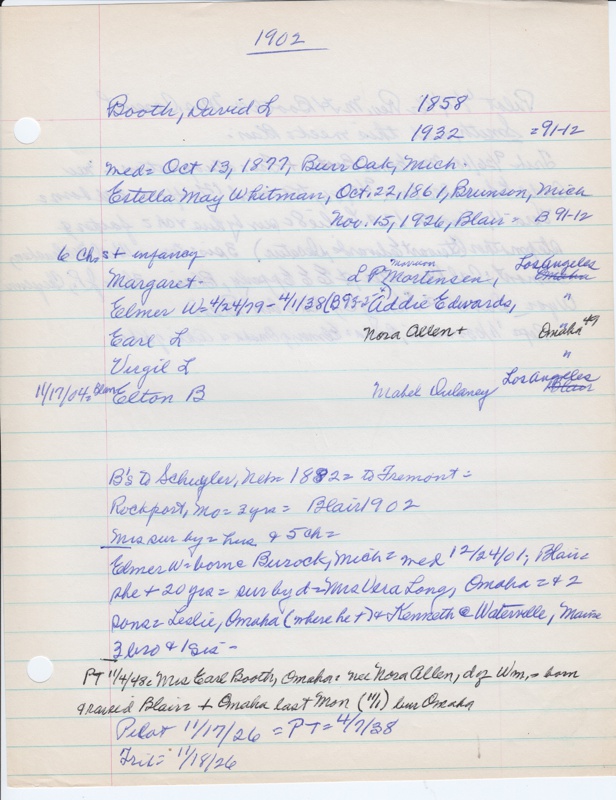 1902
Booth, David L 1858
1932 = 91-12
med= Oct 13, 1877, Burr Oak, Mich.
Estella May Whitman, Oct. 22, 1861, Brunson, Mich
Nov. 15, 1926, Blair = B 91-12
6 Ch, 1 + infancy
Margaret - L P. Mortensen, Los Angeles Omaha
Elmer W= 4/24/79 - 4/1/38 Addie Edwards, "
Earl L Nora Allen + Omaha 49
Virgil L "
11/17/04= Blair Elton B Mabel Dulaney Los Angeles Blair
B's to Schuyler, Neb= 1882= to Fremont=
Rockport, Mo= 3 yrs= Blair 1902
Mrs sur by= hus & 5 ch=
Elmer W= born Burock, Mich= med 12/24/01; Blair=
she + 20 yrs= sur by d= Mrs Vera Long, Omaha= & 2
sons= Leslie, Omaha (where he +) & Kenneth @ Waterville, Maine
3 bro & 1 sis-
PT 11/4/48: Mrs Earl Booth, Omaha: nee Nora Allen, d of Wm, = born
& raised Blair= + Omaha last Mon (11/1) bur Omaha
Pilot 11/17/26 = PT= 4/7/38
Trib= 11/18/26